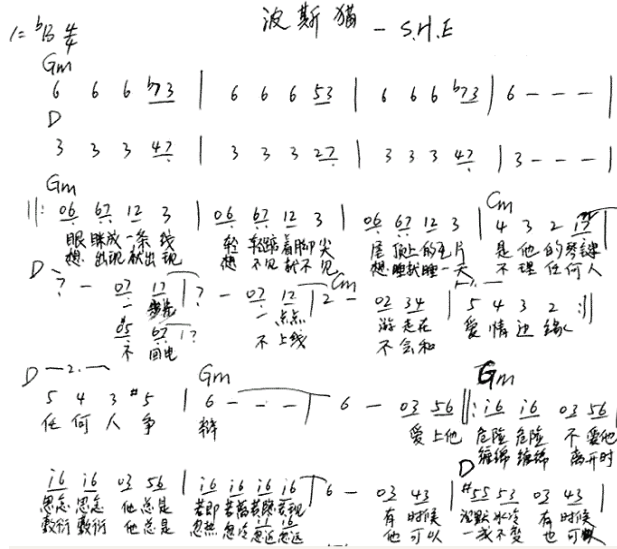 波斯猫 - S.H.E
1= ♭B 4/4
Gm
6 6 6 ♭73 | 6 6 6 53 | 6 6 6 ♭73 | 6 - - - |
D
3 3 3 47 | 3 3 3 27 | 3 3 3 47 | 3 - - - |
Gm Cm
||: 06 67 12 3 | 06 67 12 3 | 06 67 12 3 | 4 3 2 17
眼眯成一条线 轻轻踮着脚尖 屋顶上的瓦片 是他的琴键
想出现就出现 想不见就不见 想睡就睡一天 不理任何人
D Cm 1.
7 - 07 12 | 7 - 07 12 | 2 - 02 34 | 5 4 3 2 :||
一点点 游走在 爱情边缘
05 67 17
不回电 不上线 不会和
D 2. Gm Gm
5 4 3 #5 | 6 - - - | 6 - 03 56 ||: i6 i6 03 56 |
任何人争 辩 爱上他 危险危险 不爱他
缠绵缠绵 离开时
D
i6 i6 03 56 | i6 i6 i6 i6 | 6 - 03 43 | #55 53 03 43 |
思念思念 他总是 若即若离若隐若现 有时候 沉默冰冷 有时候
敷衍敷衍 他总是 忽热忽冷忽远忽近 他可以 一成不变 也可以